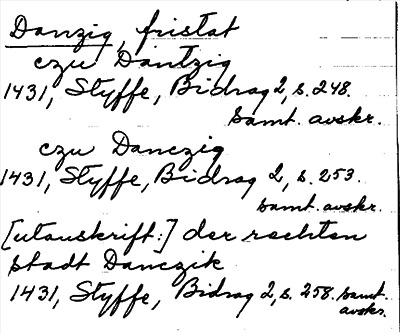 Danzig, fristat
czu Dantzig
1431, Styffe, Bidrag 2, s. 248.
samt. avskr.
czu Danczig
1431, Styffe, Bidrag 2, s. 253.
samt. avskr.
[utanskrift:] der rechten
stadt Danczik
1431, Styffe, Bidrag 2, s. 258. samt.
avskr.